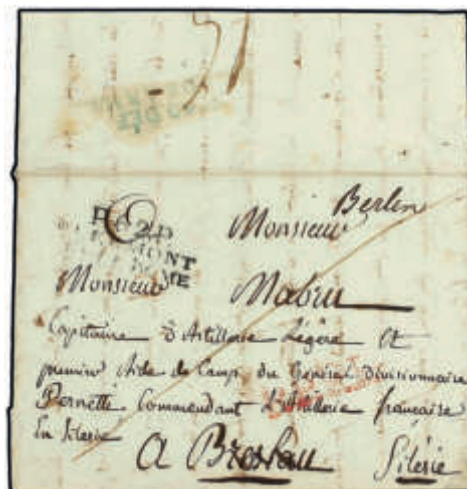 Berlin
Monsieur
Monsieur Mabru
Capitaine d'Artillerie Légère et
premier Aide de Camp du Général Divisionnaire
Pernetti Commandant L'Artillerie française
En Silesie
A Breslau Silésie